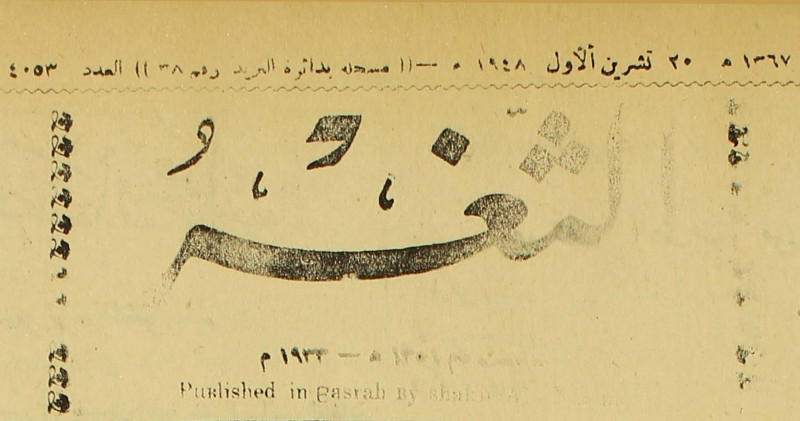 ١٣٦٧ ه ٢٠ تشرين ألأول ١٩٤٨ م —(( مسجله بدائرة البريد رقم ٣٨ )) العدد ٤٠٥٣
الثغر
— ١٩٣٣ م
Published in Basrah By